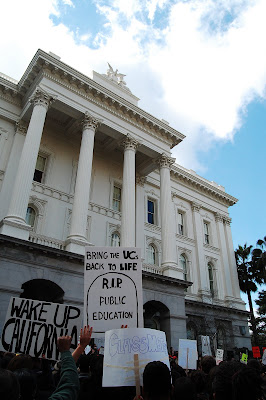 BRING THE UCs
BACK TO LIFE
R.I.P.
PUBLIC
EDUCATION
WAKE UP
CALIFORNIA